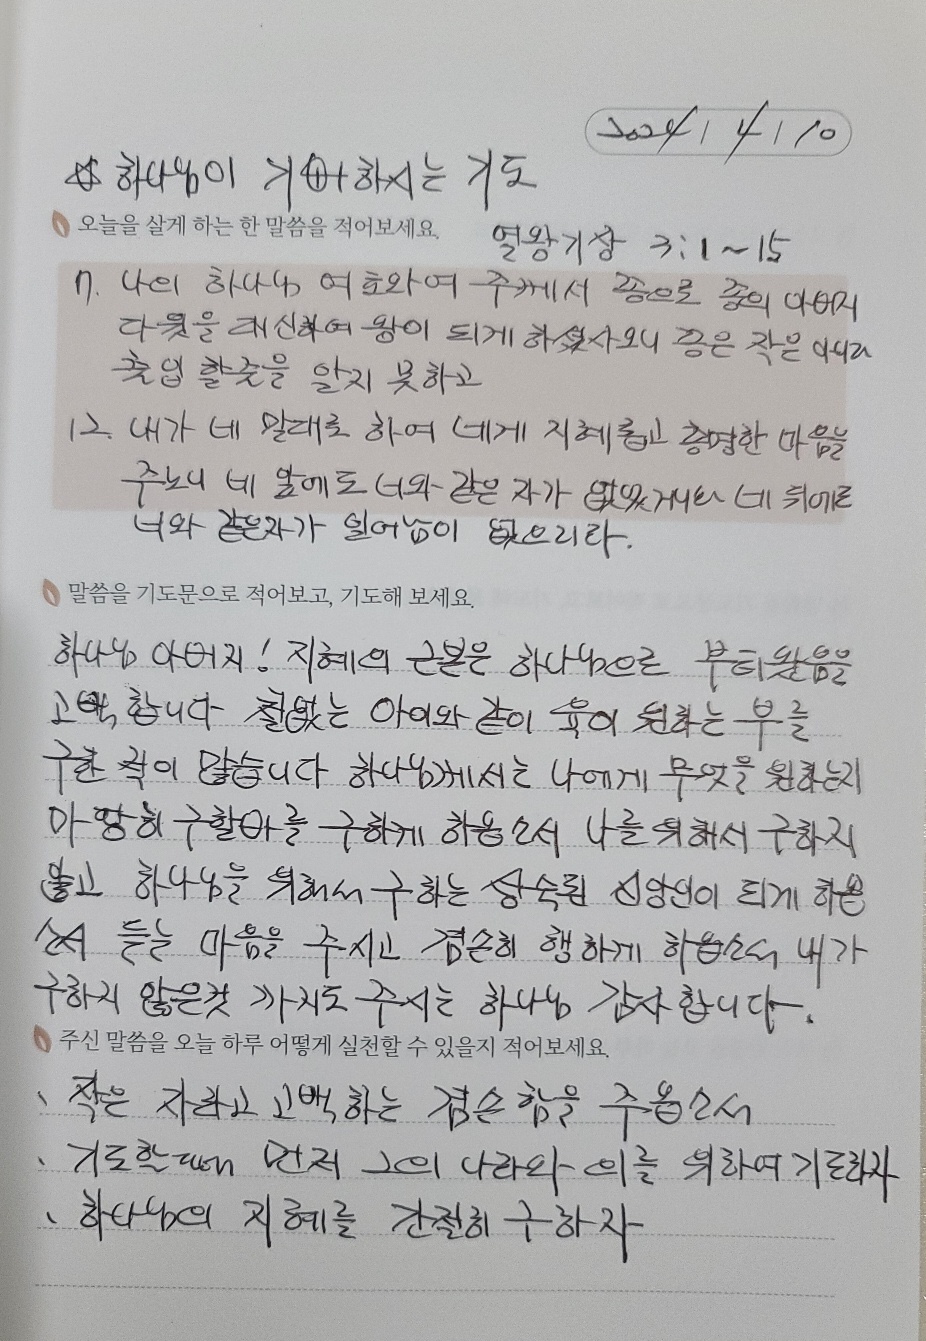 2024/4/10
☆ 하나님이 기뻐하시는 기도
오늘을 살게 하는 한 말씀을 적어보세요.
열왕기상 3:1~15
7. 나의 하나님 여호와여 주께서 종으로 종의 아버지
다윗을 대신하여 왕이 되게 하셨사오나 종은 작은 아이라
출입 할줄을 알지 못하고
12. 내가 네 말대로 하여 네게 지혜롭고 총명한 마음을
주노니 네 앞에도 너와 같은 자가 없었거니와 네 뒤에도
너와 같은자가 일어남이 없으리라.
말씀을 기도문으로 적어보고, 기도해 보세요.
하나님 아버지! 지혜의 근본은 하나님으로 부터왔음을
고백합니다 철없는 아이와 같이 육이 원하는 부를
구한 적이 많습니다 하나님께서는 나에게 무엇을 원하는지
마땅히 구할바를 구하게 하옵소서 나를 위해서 구하지
않고 하나님을 위해서 구하는 성숙된 신앙인이 되게 하옵
소서 듣는 마음을 주시고 겸손히 행하게 하옵소서 내가
구하지 않은것 까지도 주시는 하나님 감사합니다.
주신 말씀을 오늘 하루 어떻게 실천할 수 있을지 적어보세요.
、작은 자라고 고백하는 겸손함을 주옵소서
、기도할때에 먼저 그의 나라와 의를 위하여 기도하자
、하나님의 지혜를 간절히 구하자